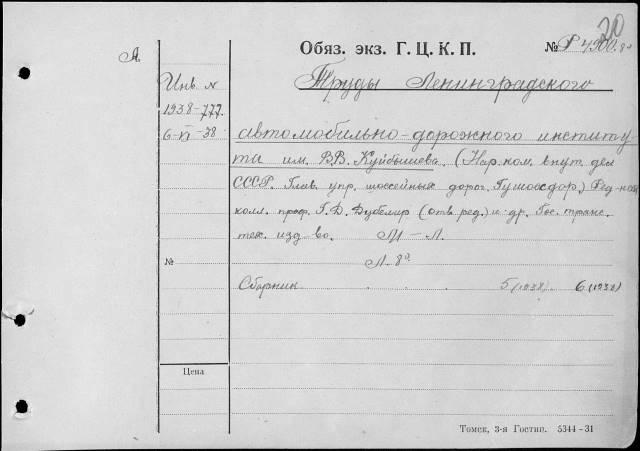 20
Обяз. экз. Г. Ц. К. П. № Р 4900. 8°
Я.
Инв. № Труды Ленинградского
1938-777.
6-VI-38 автомобильно-дорожного институ
та им. В.В. Куйбышева. (Нар. ком. внут. дел
СССР. Глав. упр. шоссейных дорог. Гушосдор.) Ред-
колл. проф. Г. Д. Дубелир (отв. ред.) и др. Гос. транс.
тех. изд-во. М-Л.
№ Л. 8°
Сборник . . . 5 (1938). 6 (1938)
Цена
Томск, 3-я Гостип. 5344-31